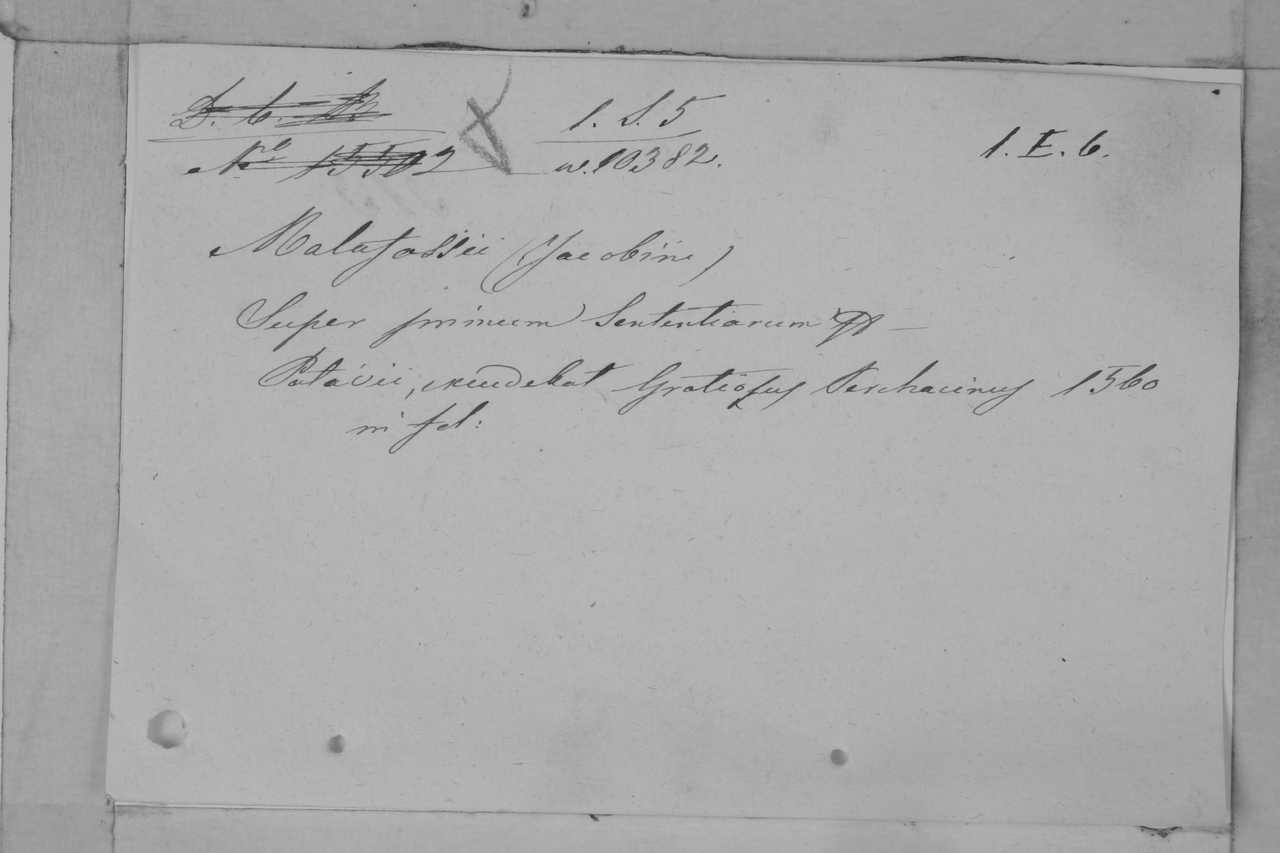 D. C. B 1. S. 5
No 15502 w. 10382. 1. E. 6.
Malafossii (Jacobini)
Super primum Sententiarum
Patavii, excudebat Gratiosus Perchacinus 1560
in fol: